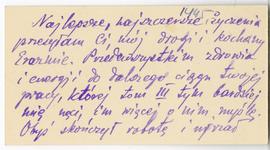 1945
Najlepsze, najszczersze życzenia
przesyłam Ci, mój drogi i kochany
Erazmie. Przedewszystkim zdrowia
i energji do dalszego ciągu Twojej
pracy, której tom III tym bardziej
mię nęci, im więcej o nim myślę.
Obyś skończył robotę i